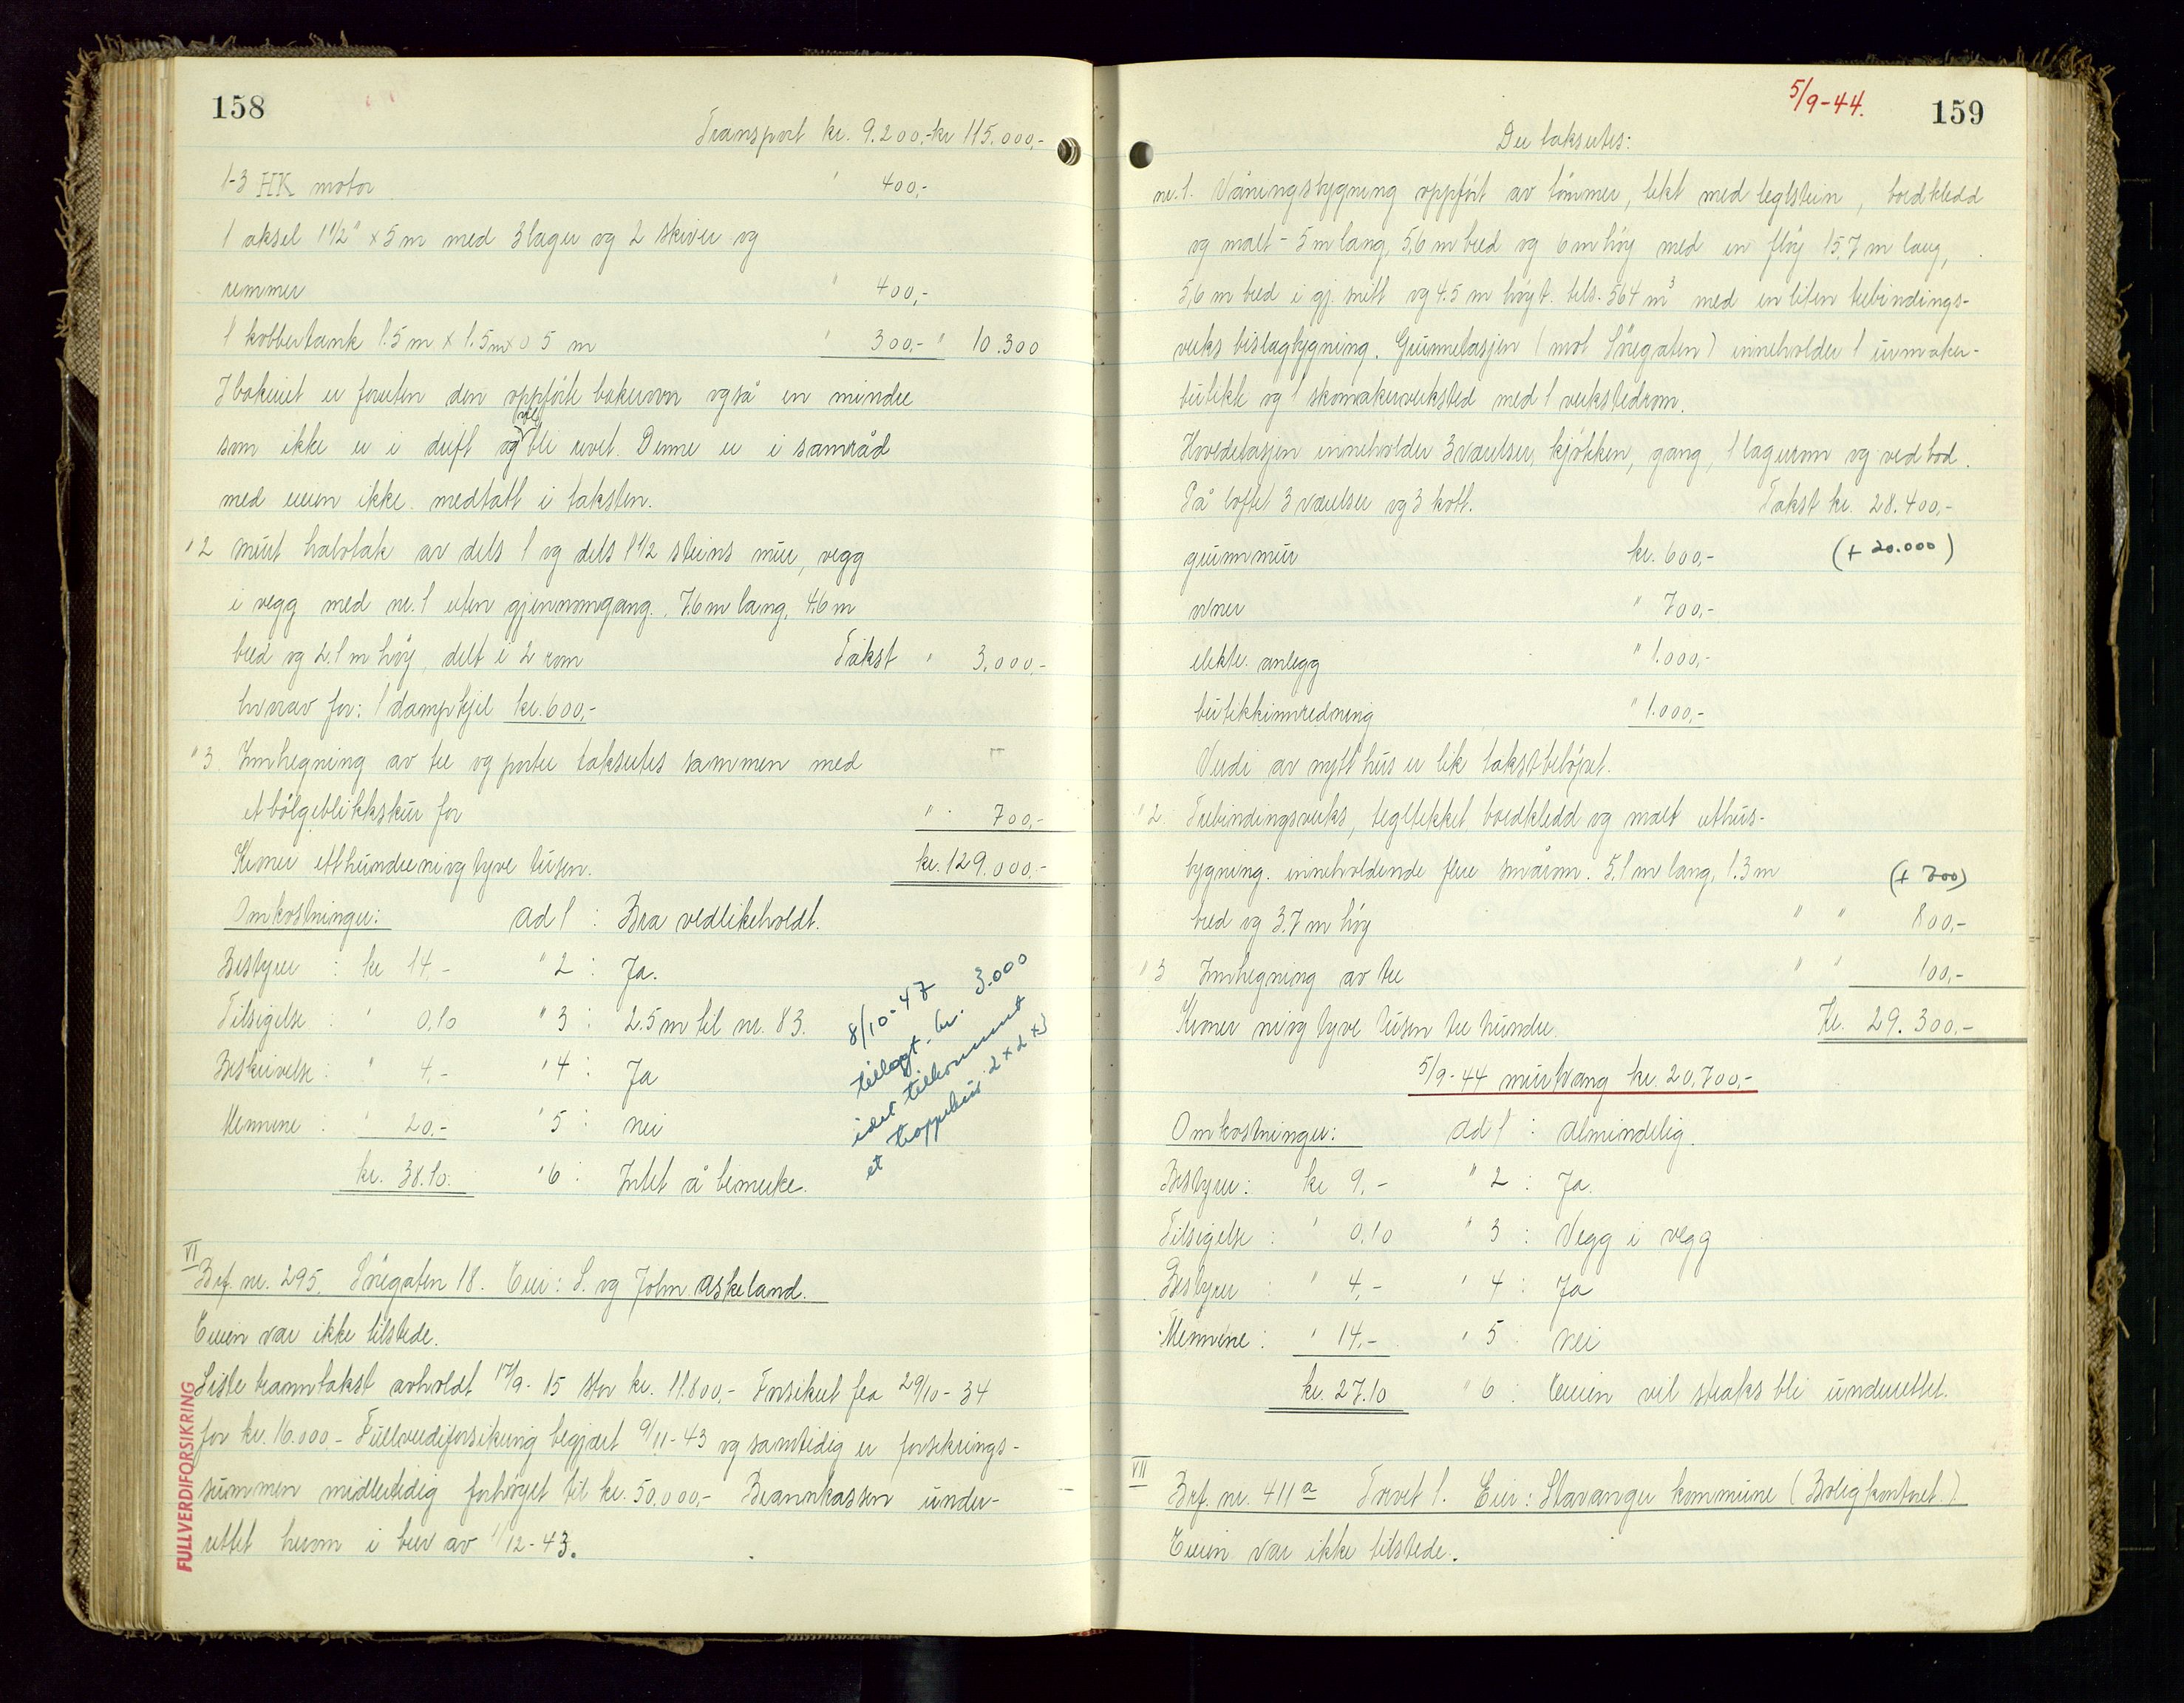 158
Transport kr. 9.200,- kr 115.000,-
1-3 HK motor " 400,-
1 aksel 1 1/2" x 5 m med 3 lager og 2 skiver og
remmer " 400,-
1 kobbertank 1.5 m x 1.5 m x 0 5 m " 300,- " 10.300
I bakeriet er foruten den oppförte bakerovn også en mindre
som ikke er i drift og vil bli revet. Denne er i samråd
med eieren ikke medtatt i taksten.
" 2 murt halvtak av dels 1 og dels 1 1/2 steins mur, vegg
i vegg med nr. 1 uten gjennomgang. 7.6 m lang, 4.6 m
bred og 2.1 m höy, delt i 2 rom Takst " 3.000,-
hvorav for: 1 dampkjel kr. 600,-
" 3. Innhegning av tre og porter takseres sammen med
et bölgeblikkskur for " 700,-
Kroner etthundreniogtyve tusen. kr. 129.000,-
Omkostninger: ad 1 : Bra vedlikeholdt.
Bestyrer : kr 14,- " 2 : Ja.
Tilsigelse : " 0,10 " 3 : 2.5 m til nr. 83.
Beskrivelse : " 4,- " 4 : Ja
Mennene : " 20,- " 5 : nei
kr. 38.10. " 6 : Intet å bemerke.
8/10-47
tillagt kr. 3.000
idet tilkommet
et trappehus 2 x 2 x 3
VI
Brf. nr. 295. Sòregaten 18. Eier: S. og John Askeland.
Eieren var ikke tilstede.
Siste branntakst avholdt 17/9-15 stor kr. 11.800,- Forsikret fra 29/10-34
for kr. 16.000,- Fullverdiforsikring begjært 9/11-43 og samtidig er forsikrings-
summen midlertidig forhöyet til kr. 50.000,- Brannkassen under-
rettet herom i brev av 1/12-43.
FULLVERDIFORSIKRING
5/9-44.
159
Der takseres:
nr. 1. Våningsbygning oppfört av tömmer, tekt med teglstein, bordkledd
og malt - 5 m lang, 5,6 m bred og 6 m höy med en flöy 15,7 m lang,
5,6 m bred i gj. snitt og 4.5 m höyt. tils. 564 m³ med en liten trebindings-
verks bislagbygning. Grunnetasjen (mot Sòregaten) inneholder 1 urmaker-
butikk og 1 skomakerverksted med 1 verkstedrom.
Hovedetasjen inneholder 3 værelser, kjökken, gang, 1 lagerrom og vedbod.
På loftet 3 værelser og 3 kott. Takst kr. 28.400,-
grunnmur kr. 600,- (+ 20.000)
ovner " 700,-
elektr. anlegg " 1.000,-
butikkinnredning " 1.000,-
Verdi av nytt hus er lik takstbelöpet.
" 2. Trebindingsverks, tegltekket bordkledd og malt uthus-
bygning. inneholdende flere smårom. 5.1 m lang, 1.3 m (+ 700)
bred og 3.7 m höy " " 800,-
" 3 Innhegning av tre " " 100,-
Kroner niogtyve tusen tre hundre Kr. 29.300,-
5/9-44 murtvang kr. 20.700,-
Omkostninger: ad 1 : Almindelig.
Bestyrer : kr 9,- " 2 : Ja.
Tilsigelse : " 0.10 " 3 : Vegg i vegg
Bestyrer : " 4,- " 4 : Ja
Mennene : " 14,- " 5 : nei
kr. 27.10 " 6 : Eieren vil straks bli underrettet.
VII
Brf. nr. 411a Torvet 1. Eier: Stavanger kommune (Boligkontoret).
Eieren var ikke tilstede.